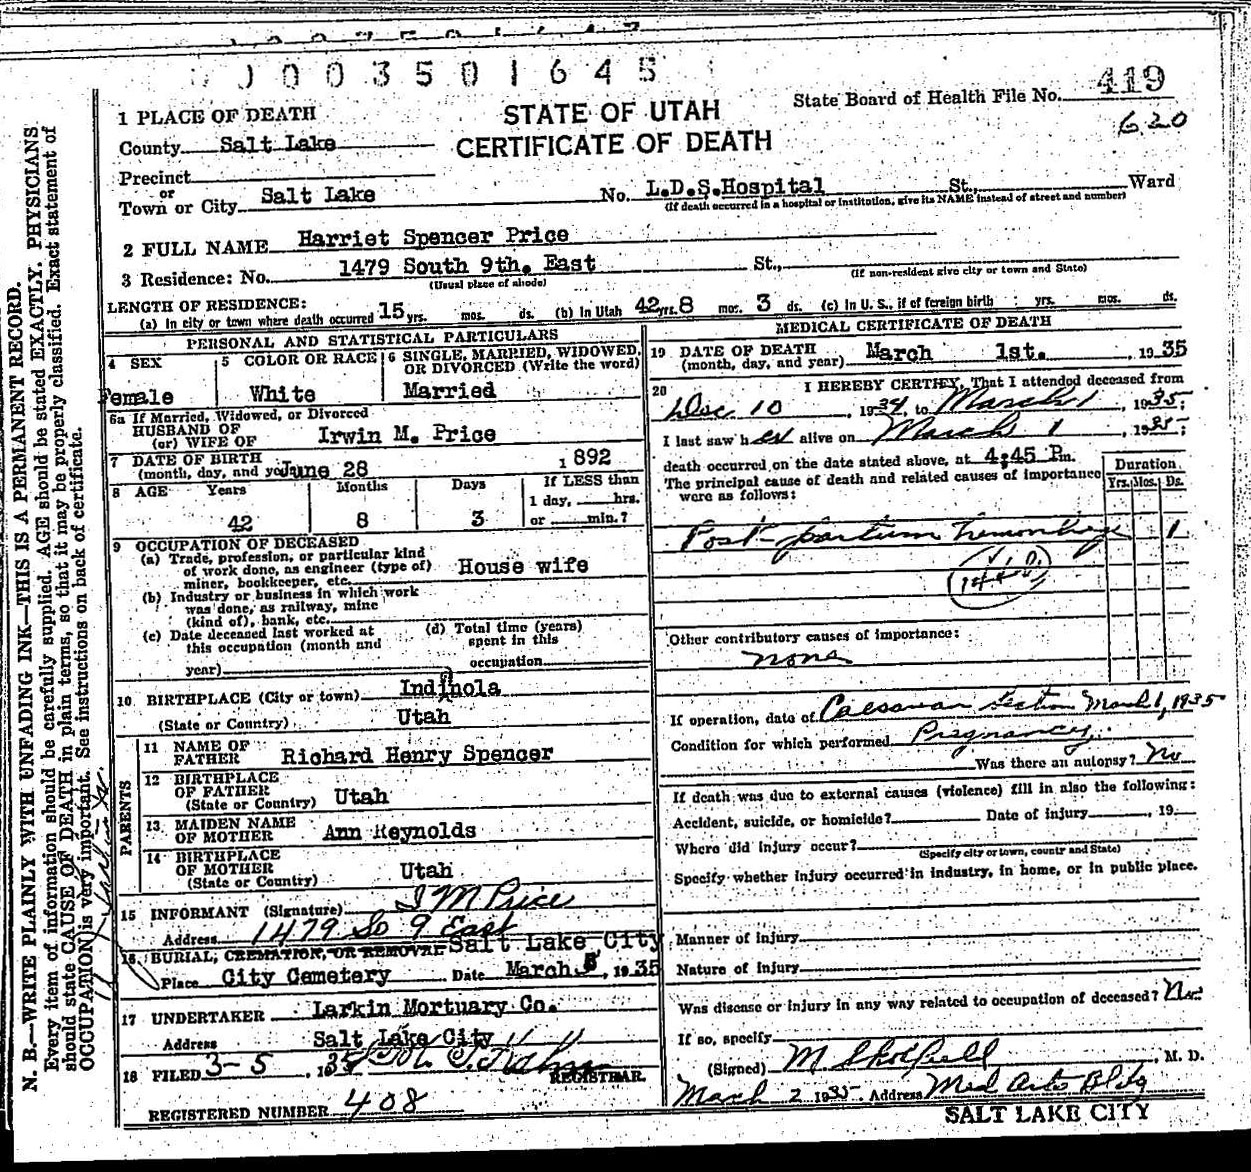 0003501645
STATE OF UTAH
CERTIFICATE OF DEATH
State Board of Health File No. 419
620
1 PLACE OF DEATH
County Salt Lake
Precinct
or
Town or City Salt Lake No. L.D.S.Hospital St., Ward
(If death occurred in a hospital or institution, give its NAME instead of street and number)
2 FULL NAME Harriet Spencer Price
3 Residence: No. 1479 South 9th. East St.,
(Usual place of abode) (If non-resident give city or town and State)
LENGTH OF RESIDENCE:
(a) In city or town where death occurred 15 yrs. mos. ds. (b) In Utah 42 yrs. 8 mos. 3 ds. (c) In U. S., if of foreign birth yrs. mos. ds.
PERSONAL AND STATISTICAL PARTICULARS
4 SEX
Female
5 COLOR OR RACE
White
6 SINGLE, MARRIED, WIDOWED, OR DIVORCED (Write the word)
Married
6a If Married, Widowed, or Divorced
HUSBAND OF
(or) WIFE OF Irwin M. Price
7 DATE OF BIRTH
(month, day, and year) June 28 1892
8 AGE Years Months Days If LESS than
1 day, hrs.
42 8 3 or min.?
9 OCCUPATION OF DECEASED
(a) Trade, profession, or particular kind
of work done, as engineer (type of)
miner, bookkeeper, etc. House wife
(b) Industry or business in which work
was done, as railway, mine
(kind of), bank, etc.
(c) Date deceased last worked at
this occupation (month and
year)
(d) Total time (years)
spent in this
occupation
10 BIRTHPLACE (City or town) Indinola
(State or Country) Utah
PARENTS
11 NAME OF
FATHER Richard Henry Spencer
12 BIRTHPLACE
OF FATHER
(State or Country) Utah
13 MAIDEN NAME
OF MOTHER Ann Reynolds
14 BIRTHPLACE
OF MOTHER
(State or Country) Utah
15 INFORMANT (Signature) I M Price
Address 1479 So 9 East
16 BURIAL, CREMATION, OR REMOVAL Salt Lake City
Place City Cemetery Date March 5, 1935
17 UNDERTAKER Larkin Mortuary Co.
Address Salt Lake City
18 FILED 3-5, 1935
REGISTRAR.
REGISTERED NUMBER 408
MEDICAL CERTIFICATE OF DEATH
19 DATE OF DEATH
(month, day, and year) March 1st. , 1935
20 I HEREBY CERTIFY, That I attended deceased from
Dec 10, 1934, to March 1, 1935;
I last saw her alive on March 1, 1935;
death occurred on the date stated above, at 4:45 Pm.
The principal cause of death and related causes of importance
were as follows:
Duration
Yrs. Mos. Ds.
Post-partum Hemorrhage 1
Other contributory causes of importance:
none
If operation, date of Caesarean Section March 1, 1935
Condition for which performed Pregnancy
Was there an autopsy? No
If death was due to external causes (violence) fill in also the following:
Accident, suicide, or homicide? Date of injury , 19
Where did injury occur?
(Specify city or town, county and State)
Specify whether injury occurred in industry, in home, or in public place.
Manner of injury
Nature of injury
Was disease or injury in any way related to occupation of deceased? No
If so, specify
(Signed) M. Skolfield, M. D.
March 2 1935 Address Med Arts Bldg
SALT LAKE CITY
N. B.—WRITE PLAINLY WITH UNFADING INK—THIS IS A PERMANENT RECORD.
Every item of information should be carefully supplied. AGE should be stated EXACTLY. PHYSICIANS
should state CAUSE OF DEATH in plain terms, so that it may be properly classified. Exact statement of
OCCUPATION is very important. See instructions on back of certificate.